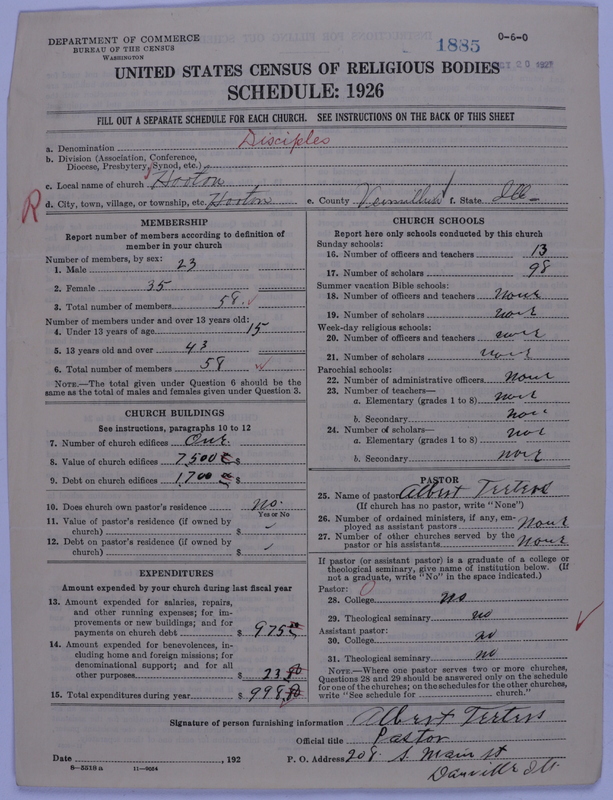 DEPARTMENT OF COMMERCE
BUREAU OF THE CENSUS
WASHINGTON
1885
0-6-0
OCT 20 1927
UNITED STATES CENSUS OF RELIGIOUS BODIES
SCHEDULE: 1926
FILL OUT A SEPARATE SCHEDULE FOR EACH CHURCH. SEE INSTRUCTIONS ON THE BACK OF THIS SHEET
a. Denomination Disciples
b. Division (Association, Conference,
Diocese, Presbytery, Synod, etc.)
c. Local name of church Hooton
d. City, town, village, or township, etc. Hooton e. County Vermillion f. State Ill
R
MEMBERSHIP
Report number of members according to definition of
member in your church
Number of members, by sex:
1. Male 23
2. Female 35
3. Total number of members 58
Number of members under and over 13 years old:
4. Under 13 years of age 15
5. 13 years old and over 43
6. Total number of members 58
NOTE.—The total given under Question 6 should be the
same as the total of males and females given under Question 3.
CHURCH BUILDINGS
See instructions, paragraphs 10 to 12
7. Number of church edifices One
8. Value of church edifices 7500 $
9. Debt on church edifices 1700 $
10. Does church own pastor's residence no.
Yes or No
11. Value of pastor's residence (if owned by
church) $
12. Debt on pastor's residence (if owned by
church) $
EXPENDITURES
Amount expended by your church during last fiscal year
13. Amount expended for salaries, repairs,
and other running expenses; for im-
provements or new buildings; and for
payments on church debt $ 975
14. Amount expended for benevolences, in-
cluding home and foreign missions; for
denominational support; and for all
other purposes $ 23
15. Total expenditures during year $ 998
CHURCH SCHOOLS
Report here only schools conducted by this church
Sunday schools:
16. Number of officers and teachers 13
17. Number of scholars 98
Summer vacation Bible schools:
18. Number of officers and teachers none
19. Number of scholars none
Week-day religious schools:
20. Number of officers and teachers none
21. Number of scholars none
Parochial schools:
22. Number of administrative officers None
23. Number of teachers—
a. Elementary (grades 1 to 8) none
b. Secondary non
24. Number of scholars—
a. Elementary (grades 1 to 8) non
b. Secondary none
PASTOR
25. Name of pastor Albert Teeters
(If church has no pastor, write "None")
26. Number of ordained ministers, if any, em-
ployed as assistant pastors None
27. Number of other churches served by the
pastor or his assistants None
If pastor (or assistant pastor) is a graduate of a college or
theological seminary, give name of institution below. (If
not a graduate, write "No" in the space indicated.)
Pastor: 0
28. College no
29. Theological seminary no
Assistant pastor:
30. College no
31. Theological seminary no
NOTE.—Where one pastor serves two or more churches,
Questions 28 and 29 should be answered only on the schedule
for one of the churches; on the schedules for the other churches,
write "See schedule for church."
Signature of person furnishing information Albert Teeters
Official title Pastor
Date , 192 P. O. Address 208 S. Main st
Danville Ill.
8-5518 a 11-9064